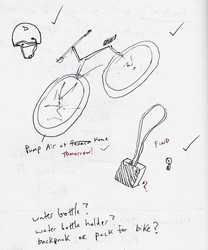 Pump Air at Home
Tomorrow!
FIND
?
water bottle?
water bottle holder?
backpack or pack for bike?